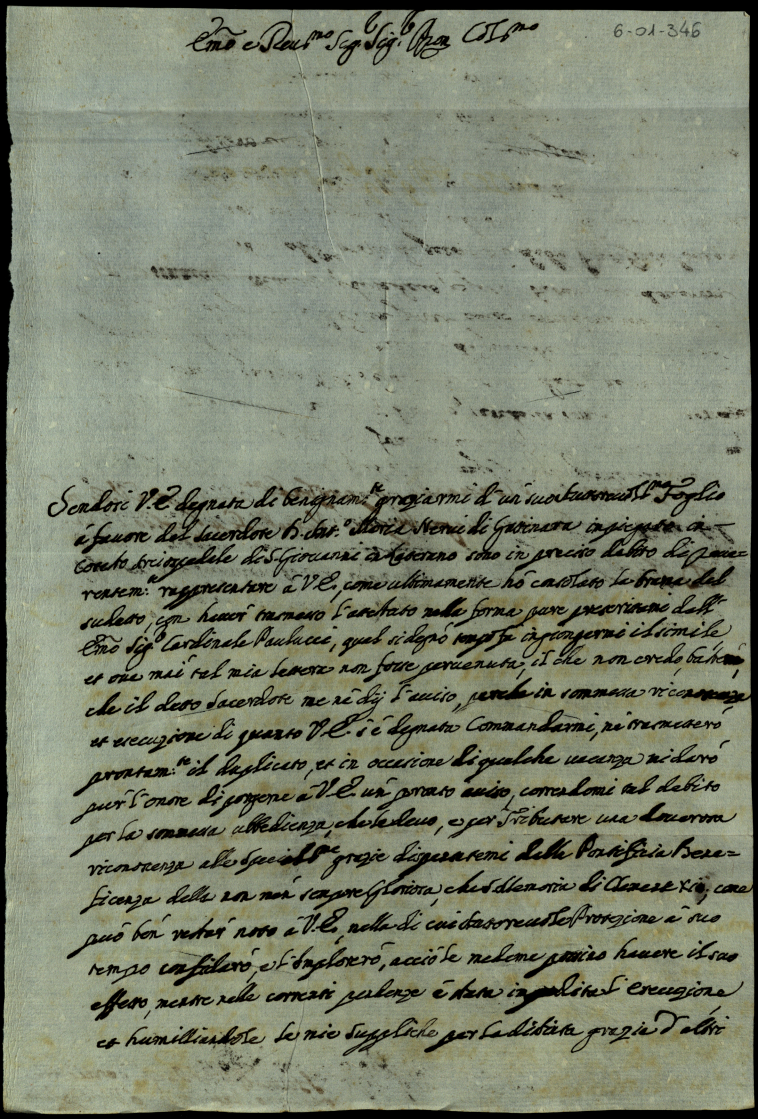 6-01-346
Emo e Reu.mo Sig.r Sig.r Pron Col.mo
Sendosi V.E. degnata di benignam.te graziarmi d'un suo Foglio
à fauore del Sacerdote D. Ant.o Maria Nervi di Gatinara in
di S. Giovanni in Laterano sono in preciso debito di
rentem.te rappresentare à V.E., come ultimamente hò consolato la brama del
sudetto, con hauer trasmesso l'attestato nella forma pure prescrittami dall'
Emo Sig.r Cardinale Paulucci, qual si degnò ingiongermi il simile
et oue mai tal mia lettera non fosse peruenuta, il che non credo,
che il detto Sacerdote me ne dij l'auiso, perche in sommessa riconoscenza
et esecuzione di quanto V.E. s'è degnata Commandarmi, ne trasmeterò
prontam.te il duplicato, et in occasione di qualche uacanza mi darò
pur l'onore di porgene à V.E. un pronto auiso, correndomi tal debito
per la sommessa ubbedienza, che le deuo, e per Tributare una douerosa
riconoscenza alle grazie dispensatemi dalla Pontificia Bene=
ficenza della non men sempre Gloriosa, che S. Memoria di Clemente XI, come
può ben restar noto à V.E., nella di cui Protezione à suo
tempo confidarò, e l'Implorerò, acciò le medeme possino hauere il suo
effetto, mentre nelle correnti pendenze è stata impedita l'esecuzione,
et humiliandole le mie Suppliche per la grazia d'altri